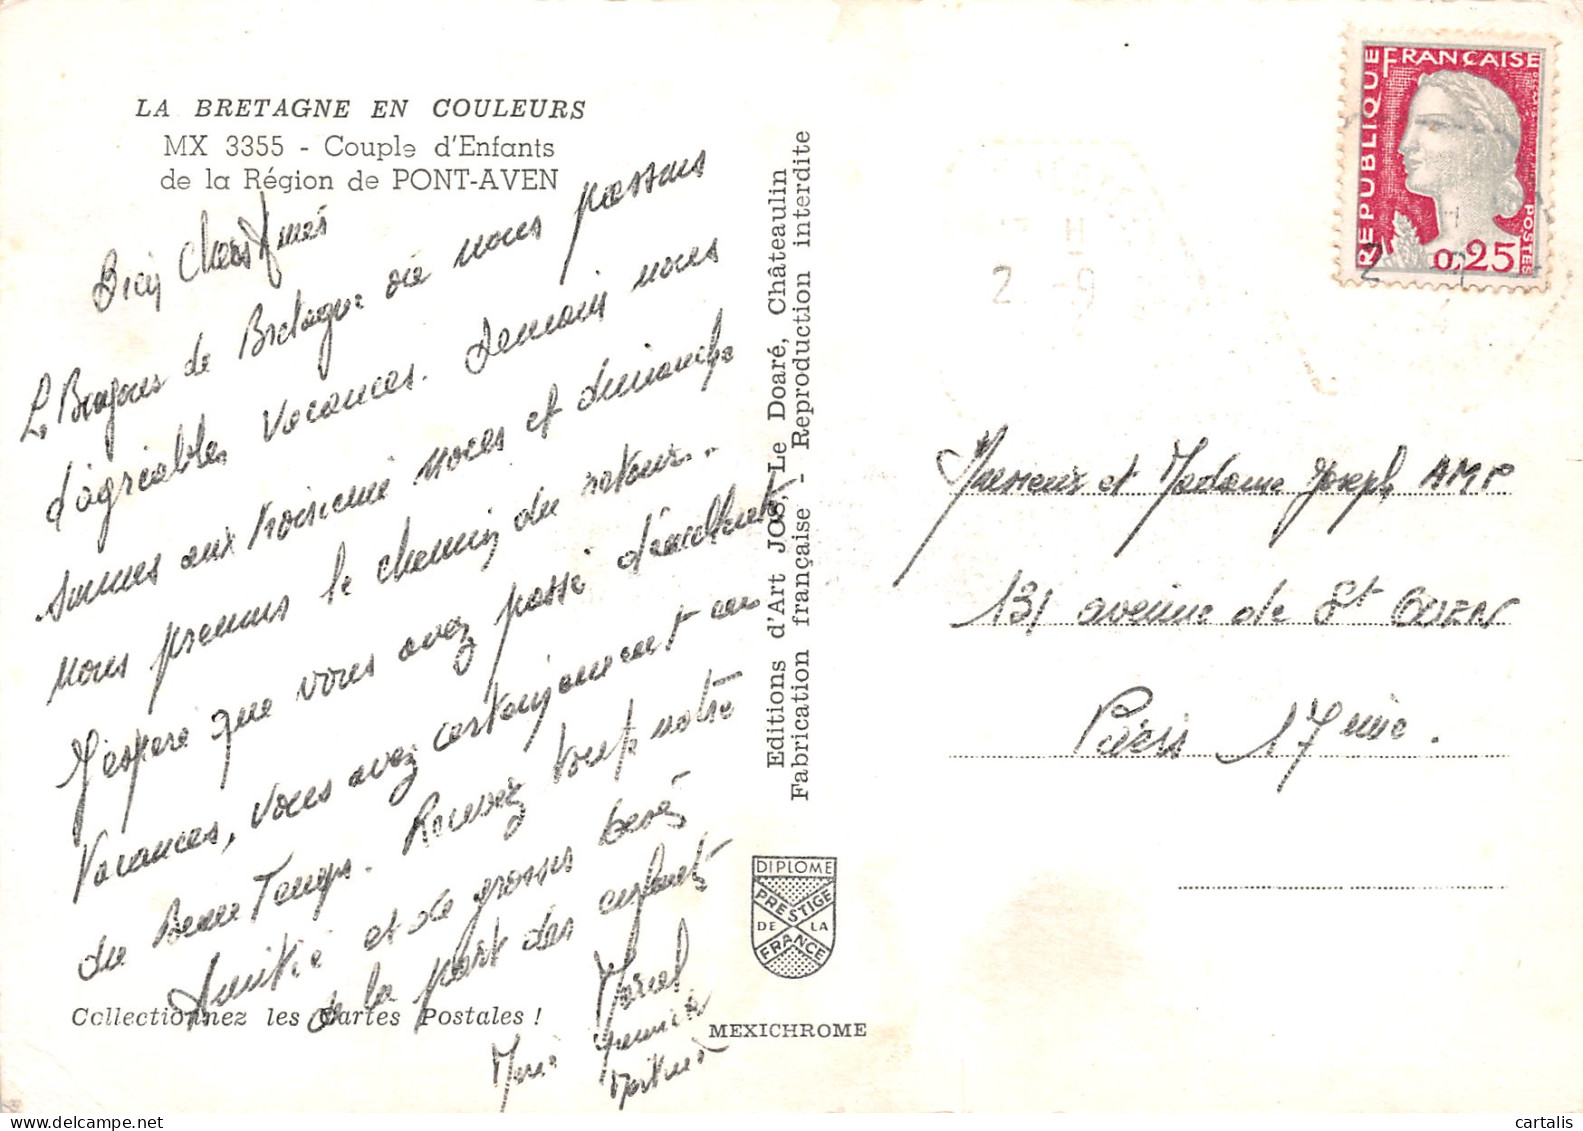 LA BRETAGNE EN COULEURS
MX 3355 - Couple d'Enfants
de la Région de PONT-AVEN
Bien Chers Amés
de Bretagne où nous passons
d'agréables Vacances. Demain nous
sommes aux troisième noces et dimanche
nous prenons le chemin du retour..
J'espère que vous avez passé d'excellents
Vacances, vous avez certainement eu
du Beau Temps. Recevez tous notre
Amitié et de grosses bisés
de la part des enfants
Marcel
Marie Yannick
Martine
Collectionnez les Cartes Postales !
Editions d'Art JOS, Le Doaré, Châteaulin
Fabrication française - Reproduction interdite
DIPLOME
PRESTIGE
DE LA
FRANCE
MEXICHROME
REPUBLIQUE FRANÇAISE
POSTES
0,25
2 -9
Monsieur et Madame Joseph AMP
131 avenue de St OUEN
Paris 17ème.
cartalis